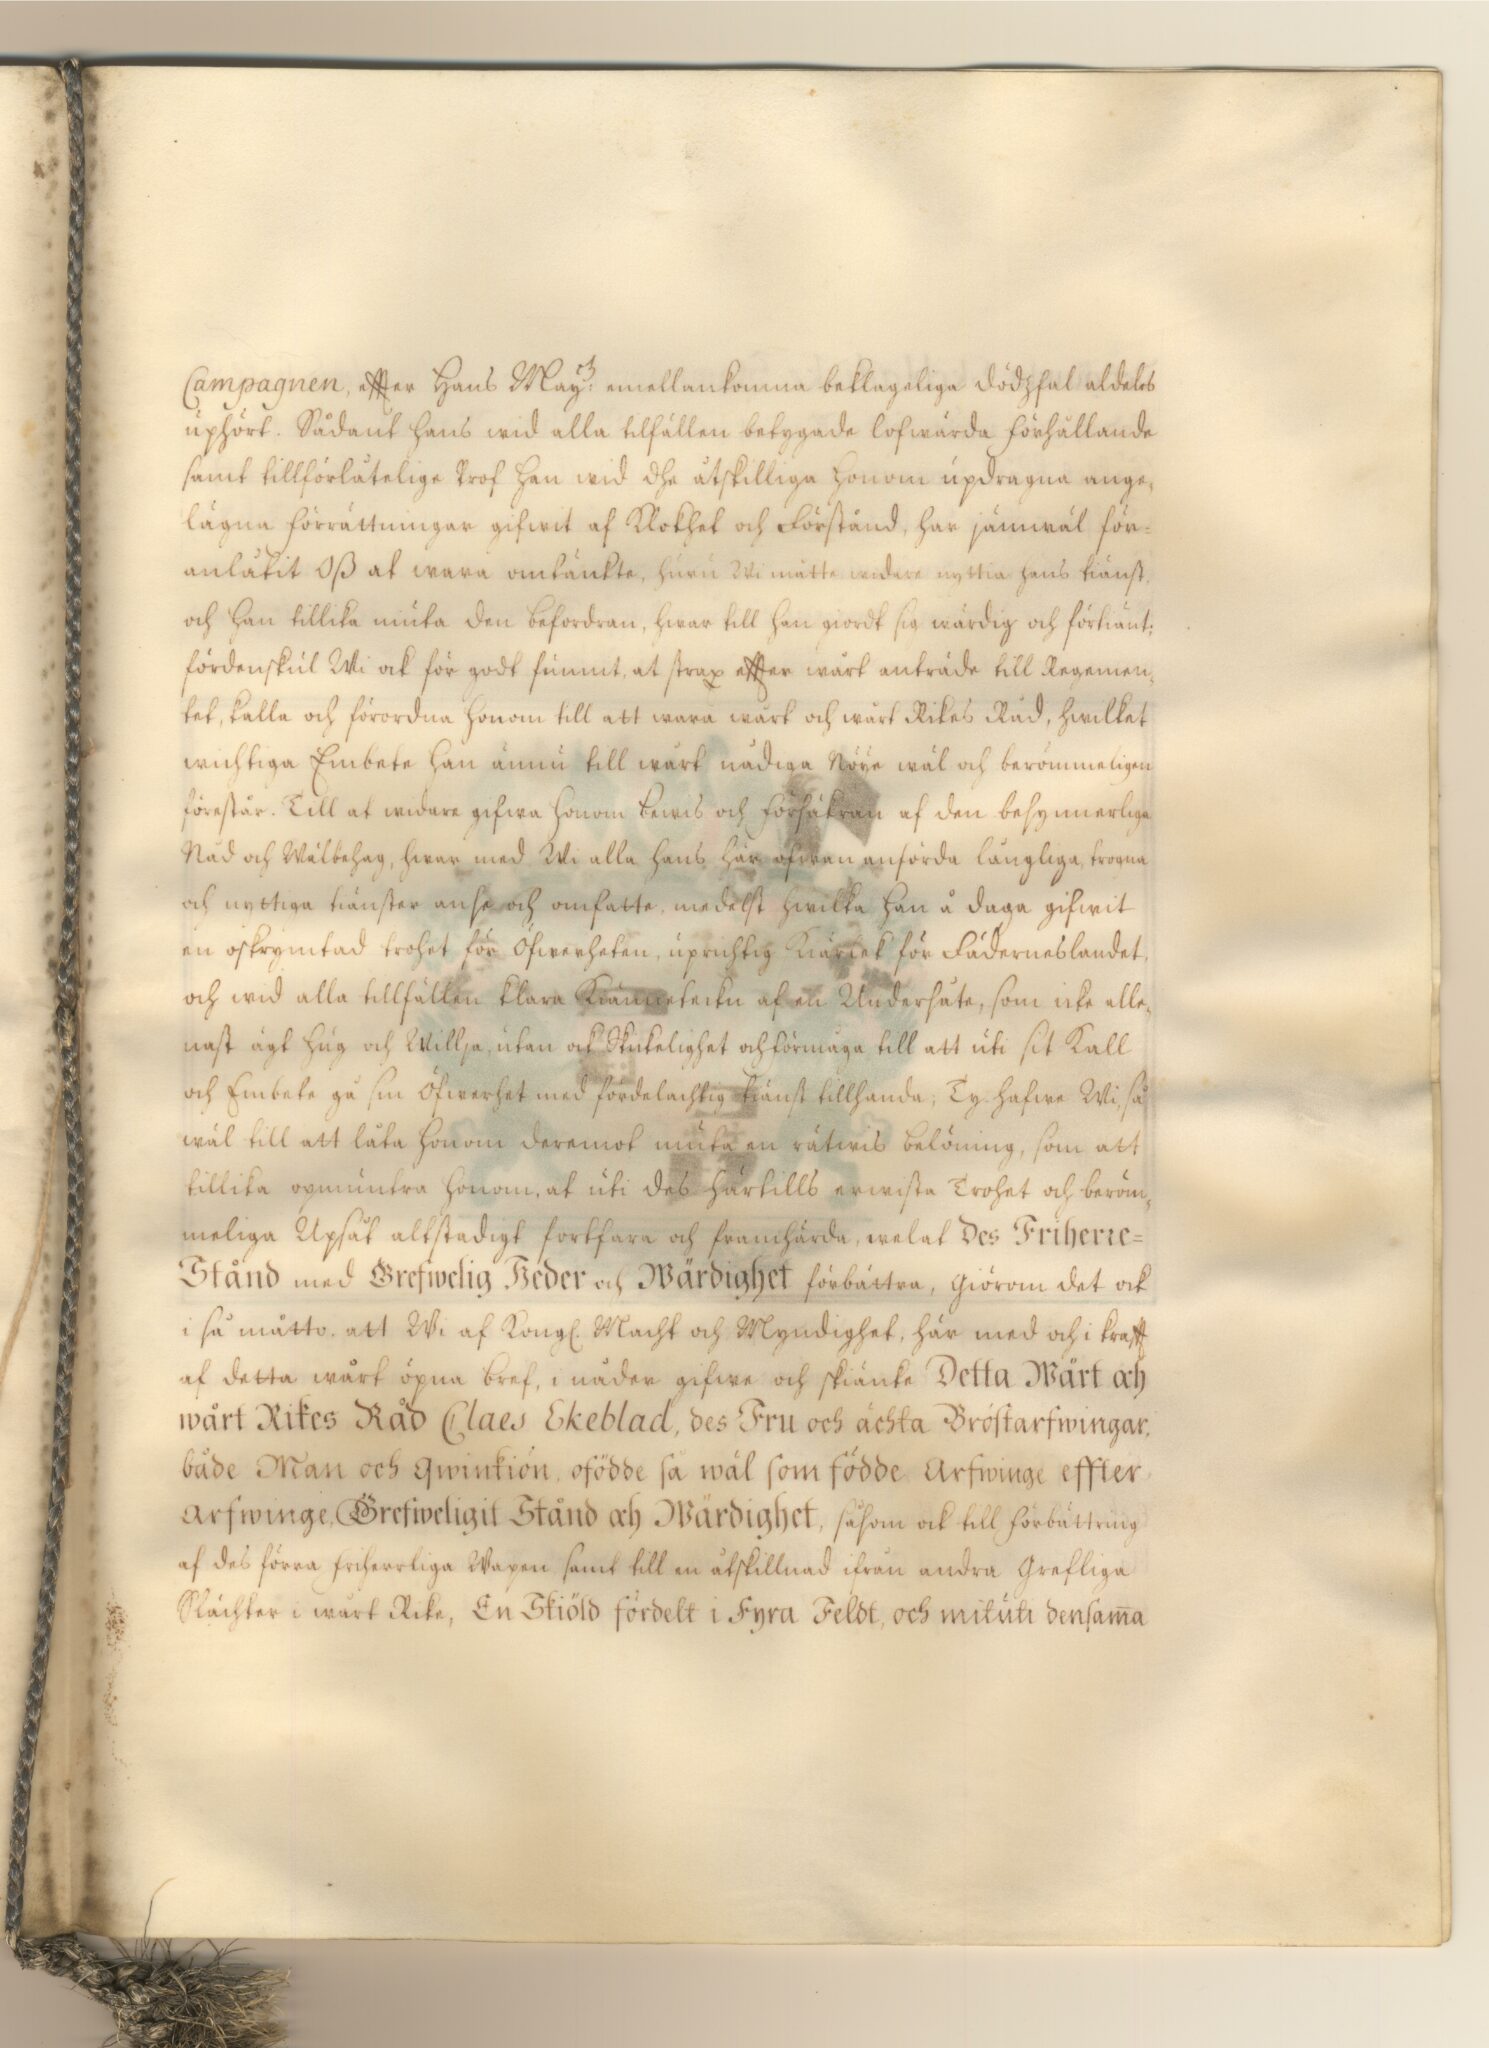 Campagnen, effter Hans May:tz emellankomna beklageliga dödzfal aldeles
uphört. Sådant hans wid alla tilfällen betygade lofwärda förhållande
samt tillförlåtelige Prof han wid dhe åtskilliga honom updragna ange,
lägna förrättningar gifwit af Klokhet och Förstånd, har jämwäl för=
anlåtit Oß at wara omtänkte, huru Wi måtte widare nyttia hans tiänst,
och han tillika niuta den befordran, hwar till han giordt sig wärdig och förtiänt;
fördenskul Wi ock för godt funnit, at strax effter wårt anträde till Regemen,
tet, kalla och förordna honom till att wara wårt och wårt Rikes Råd, hwilket
wichtiga Embete han ännu till wårt nådiga Nöye wäl och berömmeligen
förestår. Till at widare gifwa honom bewis och försäkran af den besynnerliga
Nåd och Wälbehag, hwar med Wi alla hans här ofwan anförda långliga, trogna
och nyttiga tiänster anse och omfatte, medelst hwilka han å daga gifwit
en oskrymtad trohet för Öfwerheten, uprichtig Kiärlek för Fäderneslandet,
och wid alla tillfällen klara Kiännetekn af en Undersåte, som icke alle,
nast ägt hug och Willja, utan ock Skickelighet och förmåga till att uti sit Kall
och Embete gå sin Öfwerhet med fördelachtig tiänst tillhanda; Ty hafwe Wi, så
wäl till att låta honom deremot niuta en rätwis belöning, som att
tillika opmuntra honom, at uti des härtills erwista Trohet och beröm,
meliga Upsåt altstädigt fortfara och framhärda, welat des Friherre=
Stånd med Grefwelig Heder och Wärdighet förbättra, Giörom det ock
i så måtto, att Wi af Kongl. Macht och Myndighet, här med och i krafft
af detta wårt öpna bref, i nåder gifwe och skiänke Detta Wårt och
wårt Rikes Råd Claes Ekeblad, des Fru och ächta Bröstarfwingar,
både Man och Qwinkiön, ofödde så wäl som födde, Arfwinge effter
Arfwinge, Grefweligit Stånd och Wärdighet, såsom ock till förbättring
af des förra friherrliga Wapen samt till en åtskillnad ifrån andra Grefliga
Slächter i wårt Rike, En Skiöld fördelt i Fyra Feldt, och mit uti densam̅a